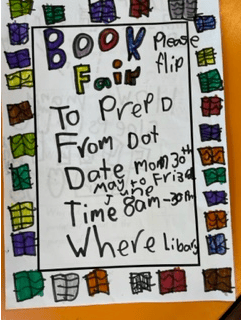 BOOK Please flip
Fair
To Prep D
From Dot
Date Mon 30th
may to Fri 3rd
June
Time 8am-30 Pm
Where Libary